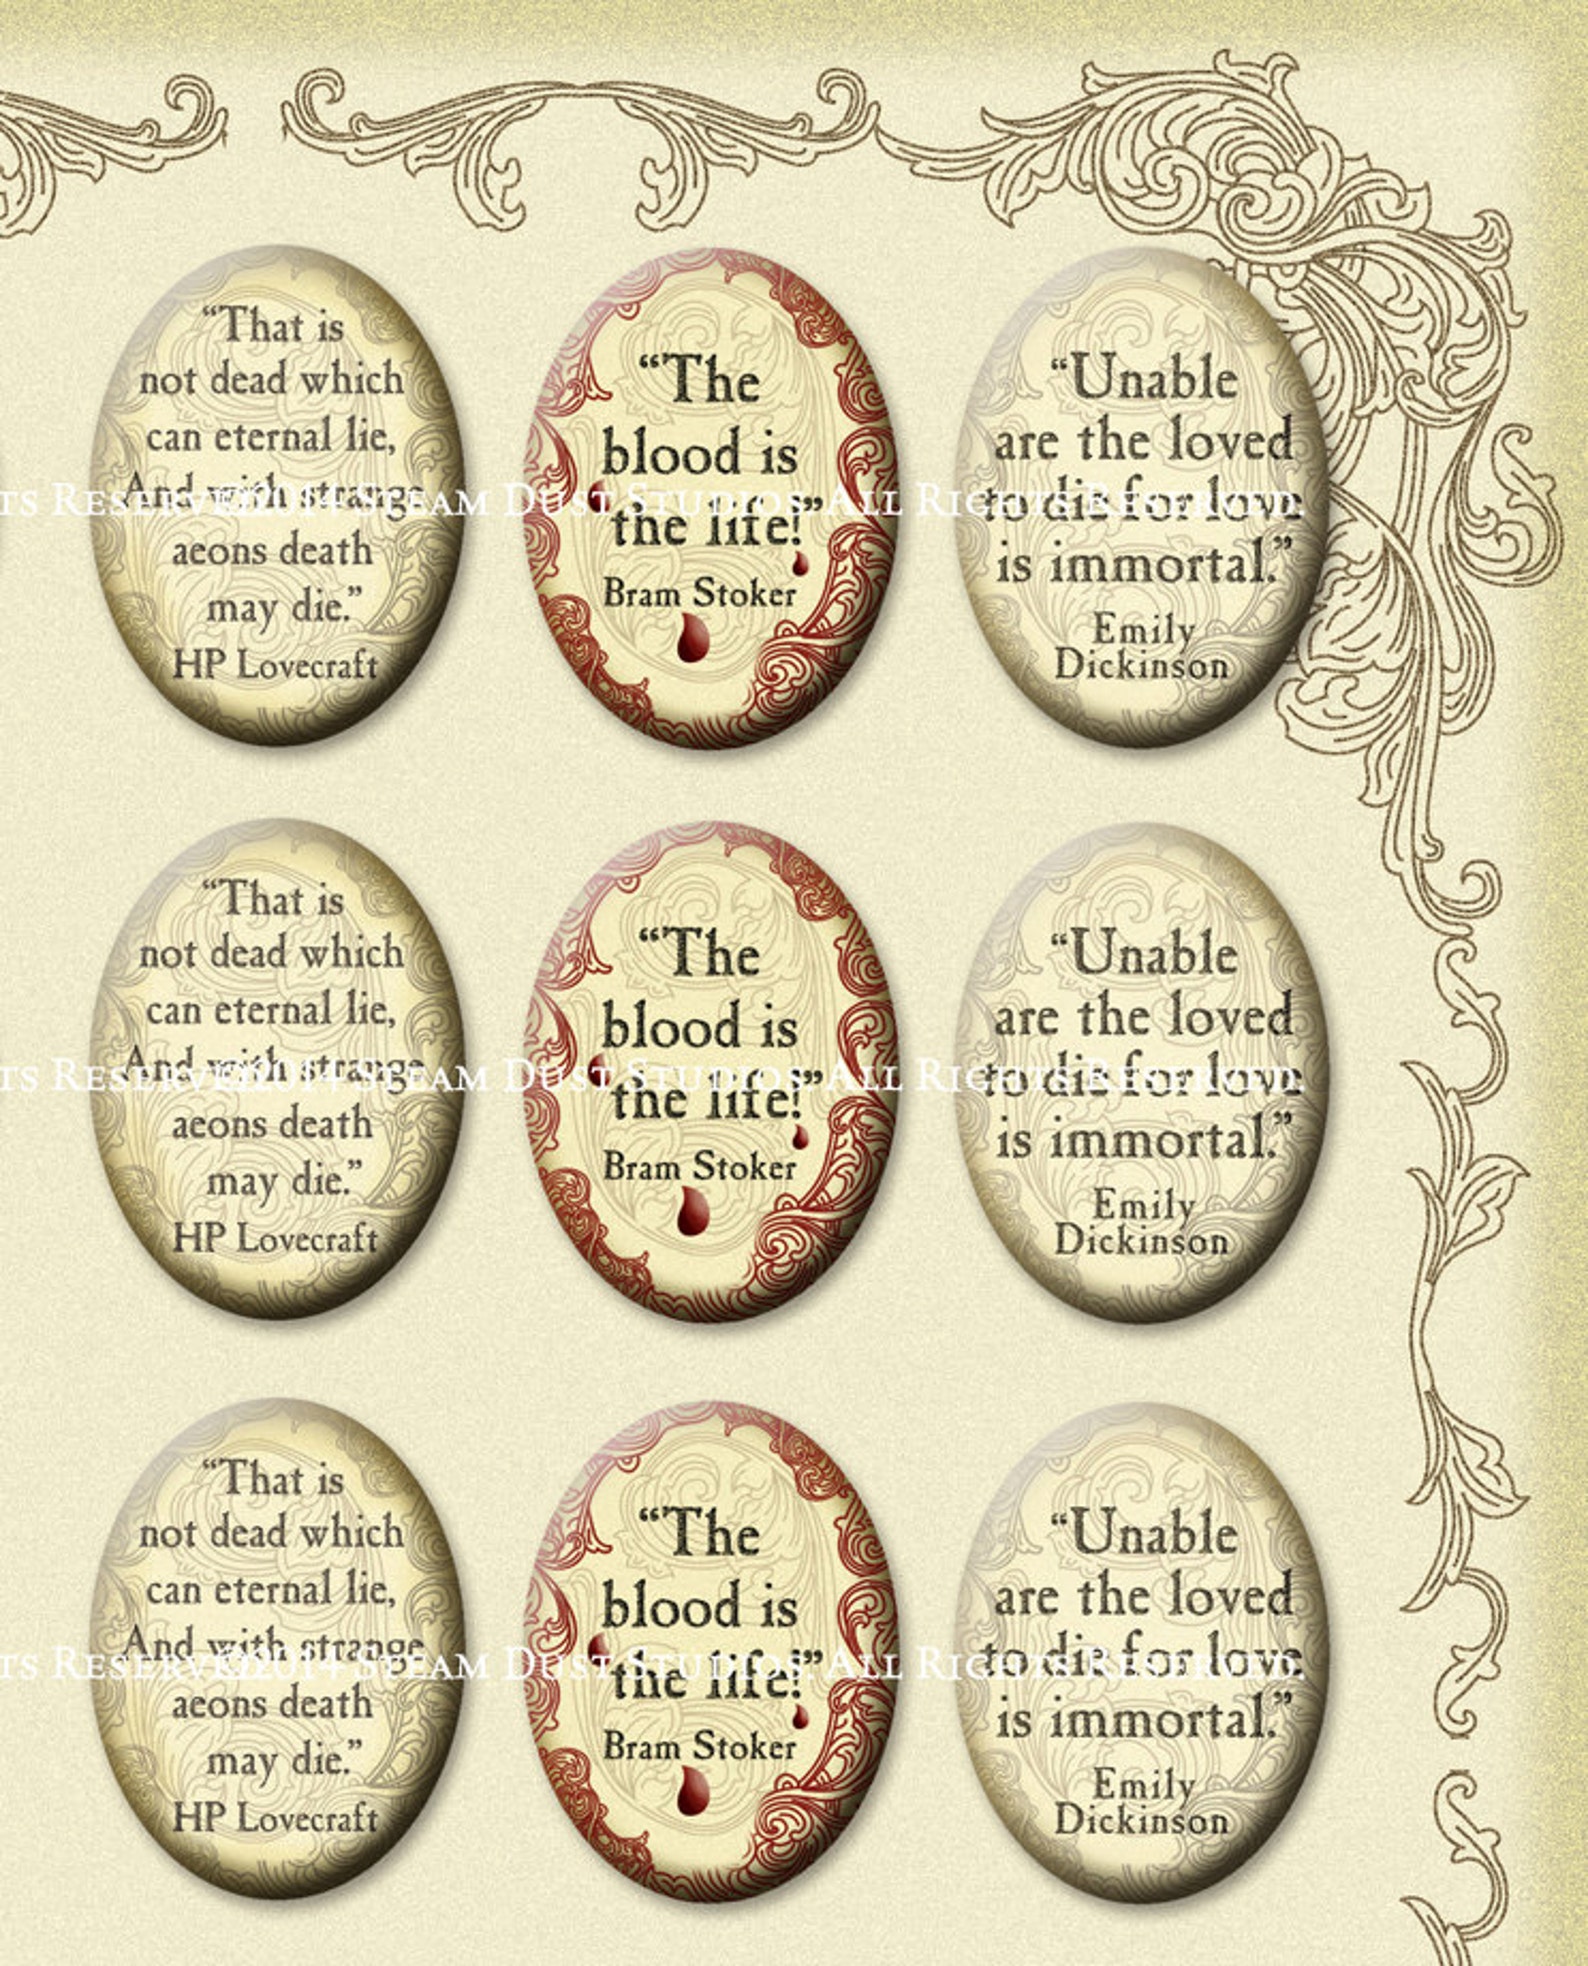 “That is
not dead which
can eternal lie,
And with strange
aeons death
may die.”
HP Lovecraft
“The
blood is
the life!”
Bram Stoker
“Unable
are the loved
to die for love
is immortal.”
Emily
Dickinson
ts Reserved. 2014 Steam Dust Studios All Rights Reserved.
“That is
not dead which
can eternal lie,
And with strange
aeons death
may die.”
HP Lovecraft
“The
blood is
the life!”
Bram Stoker
“Unable
are the loved
to die for love
is immortal.”
Emily
Dickinson
ts Reserved. 2014 Steam Dust Studios All Rights Reserved.
“That is
not dead which
can eternal lie,
And with strange
aeons death
may die.”
HP Lovecraft
“The
blood is
the life!”
Bram Stoker
“Unable
are the loved
to die for love
is immortal.”
Emily
Dickinson
ts Reserved. 2014 Steam Dust Studios All Rights Reserved.